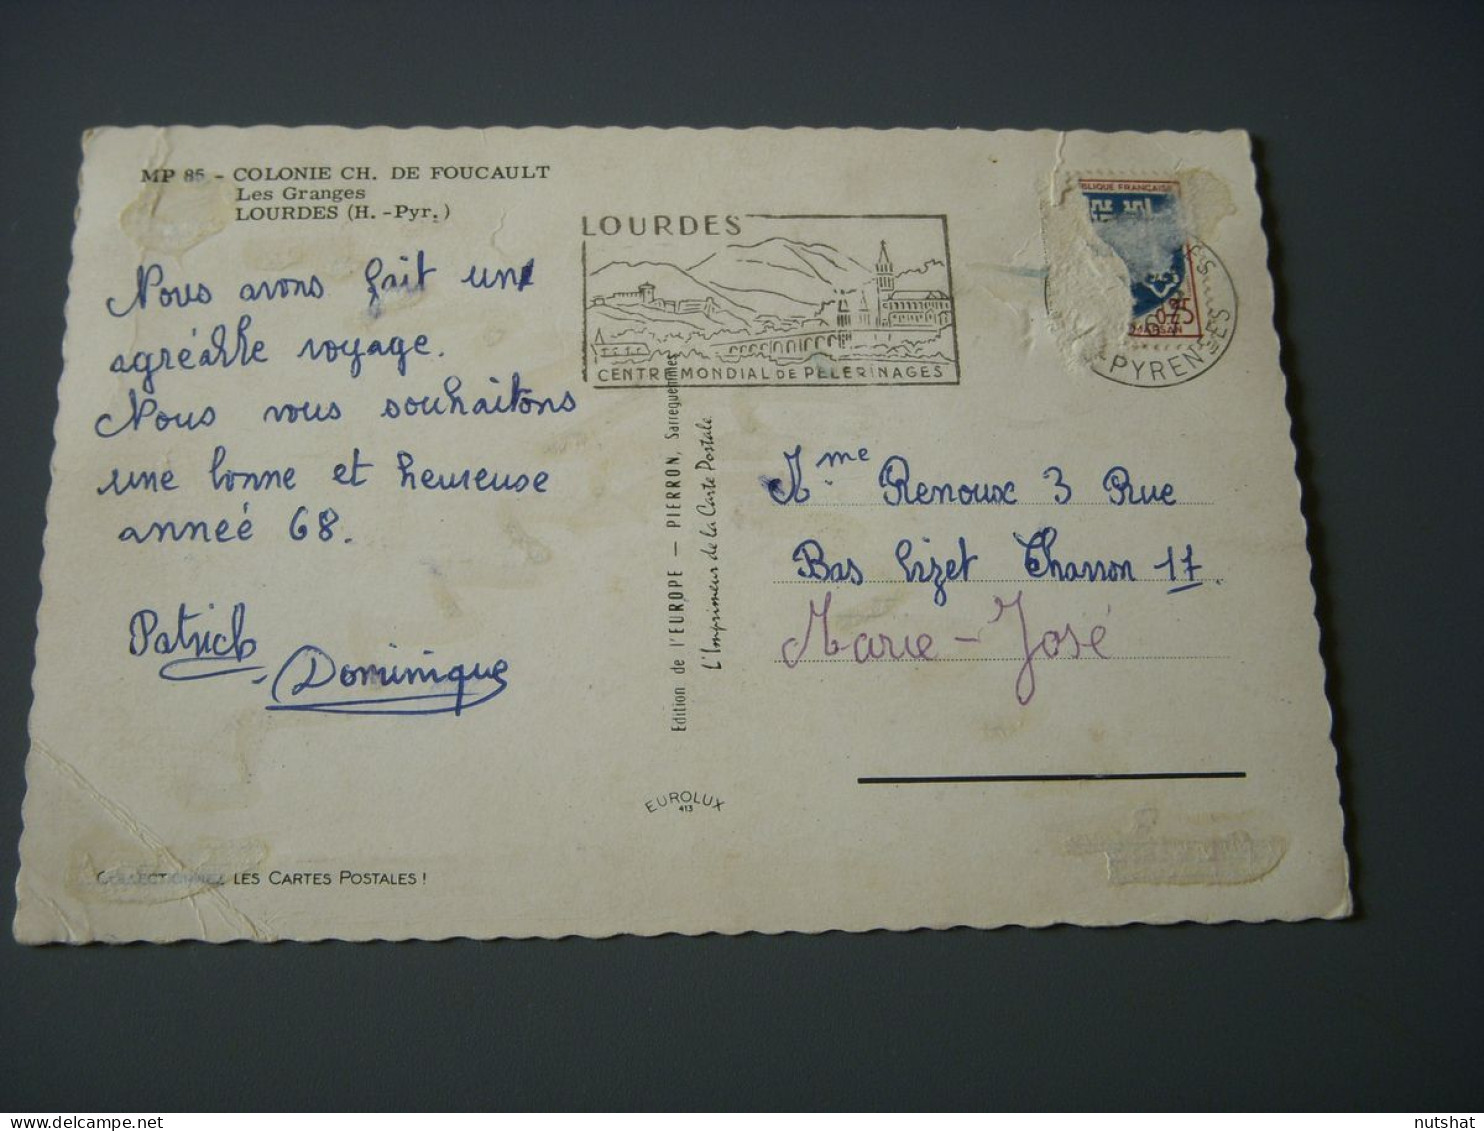 MP 85 - COLONIE CH. DE FOUCAULT
Les Granges
LOURDES (H. -Pyr.)
Nous avons fait un
agréable voyage.
Nous vous souhaitons
une bonne et heureuse
année 68.
Patrick
Dominique
COLLECTIONNEZ LES CARTES POSTALES !
LOURDES
CENTRE MONDIAL DE PELERINAGES
Edition de l'EUROPE — PIERRON, Sarreguemines
L'Imprimeur de la Carte Postale
EUROLUX
413
BLIQUE FRANÇAISE
0,25
MARSAN
PYRENEES
Mme Renoux 3 Rue
Bas Lizet Charron 17
Marie-José
nutshat